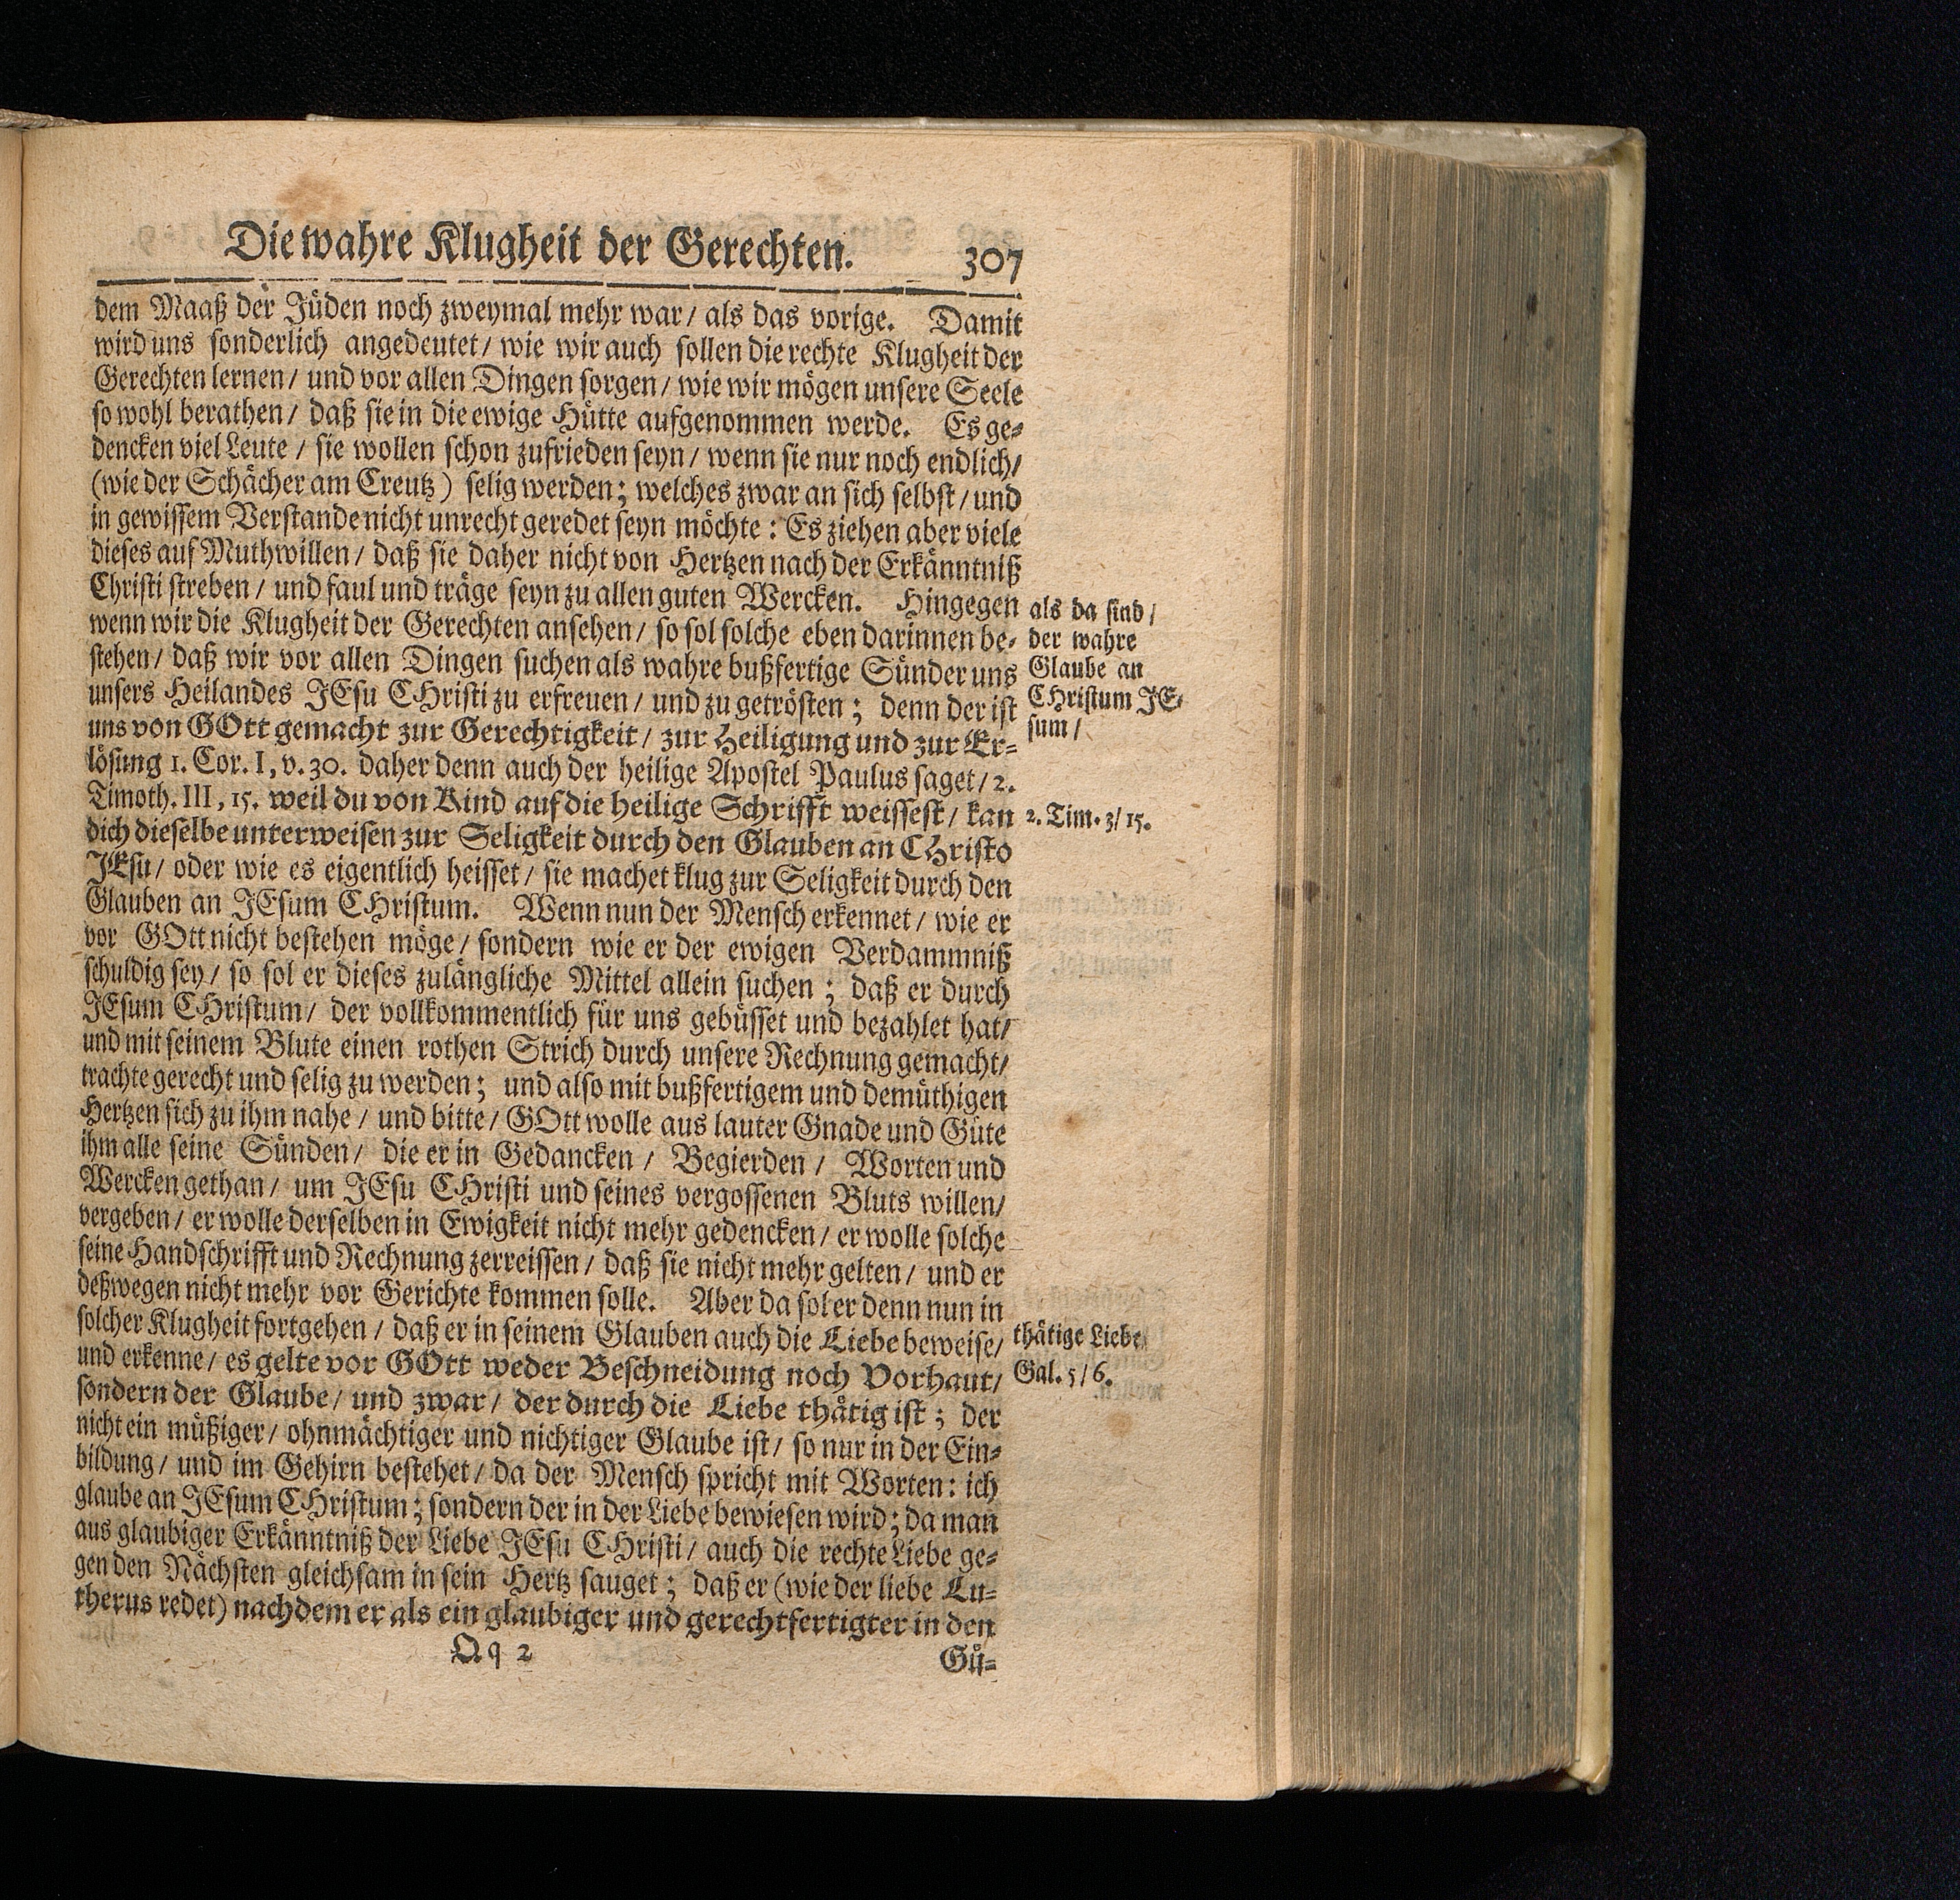 Die wahre Klugheit der Gerechten. 307
dem Maaß der Jüden noch zweymal mehr war/ als das vorige. Damit
wird uns sonderlich angedeutet/ wie wir auch sollen die rechte Klugheit der
Gerechten lernen/ und vor allen Dingen sorgen/ wie wir mögen unsere Seele
so wohl berathen/ daß sie in die ewige Hütte aufgenommen werde. Es ge-
dencken viel Leute/ sie wollen schon zufrieden seyn/ wenn sie nur noch endlich/
(wie der Schächer am Creutz) selig werden; welches zwar an sich selbst/ und
in gewissem Verstande nicht unrecht geredet seyn möchte: Es ziehen aber viele
dieses auf Muthwillen/ daß sie daher nicht von Hertzen nach der Erkänntniß
Christi streben/ und faul und träge seyn zu allen guten Wercken. Hingegen
wenn wir die Klugheit der Gerechten ansehen/ so sol solche eben darinnen be-
stehen/ daß wir vor allen Dingen suchen als wahre bußfertige Sünder uns
unsers Heilandes JEsu CHristi zu erfreuen/ und zu getrösten; denn der ist
uns von GOtt gemacht zur Gerechtigkeit/ zur Heiligung und zur Er-
lösung 1. Cor. I, v. 30. daher denn auch der heilige Apostel Paulus saget/ 2.
Timoth. III, 15. weil du von Kind auf die heilige Schrifft weissest/ kan
dich dieselbe unterweisen zur Seligkeit durch den Glauben an CHristo
JEsu/ oder wie es eigentlich heisset/ sie machet klug zur Seligkeit durch den
Glauben an JEsum CHristum. Wenn nun der Mensch erkennet/ wie er
vor GOtt nicht bestehen möge/ sondern wie er der ewigen Verdammniß
schuldig sey/ so sol er dieses zulängliche Mittel allein suchen; daß er durch
JEsum CHristum/ der vollkommentlich für uns gebüsset und bezahlet hat/
und mit seinem Blute einen rothen Strich durch unsere Rechnung gemacht/
trachte gerecht und selig zu werden; und also mit bußfertigem und demüthigen
Hertzen sich zu ihm nahe/ und bitte/ GOtt wolle aus lauter Gnade und Güte
ihm alle seine Sünden/ die er in Gedancken/ Begierden/ Worten und
Wercken gethan/ um JEsu CHristi und seines vergossenen Bluts willen/
vergeben/ er wolle derselben in Ewigkeit nicht mehr gedencken/ er wolle solche
seine Handschrifft und Rechnung zerreissen/ daß sie nicht mehr gelten/ und er
deßwegen nicht mehr vor Gerichte kommen solle. Aber da sol er denn nun in
solcher Klugheit fortgehen/ daß er in seinem Glauben auch die Liebe beweise/
und erkenne/ es gelte vor GOtt weder Beschneidung noch Vorhaut/
sondern der Glaube/ und zwar/ der durch die Liebe thätig ist; der
nicht ein müßiger/ ohnmächtiger und nichtiger Glaube ist/ so nur in der Ein-
bildung/ und im Gehirn bestehet/ da der Mensch spricht mit Worten: ich
glaube an JEsum CHristum; sondern der in der Liebe bewiesen wird; da man
aus glaubiger Erkänntniß der Liebe JEsu CHristi/ auch die rechte Liebe ge-
gen den Nächsten gleichsam in sein Hertz sauget; daß er (wie der liebe Lu-
therus redet) nachdem er als ein glaubiger und gerechtfertigter in den
Qq 2 Gü-
als da sind/
der wahre
Glaube an
CHristum JE-
sum/
2. Tim. 3/ 15.
thätige Liebe
Gal. 5/ 6.